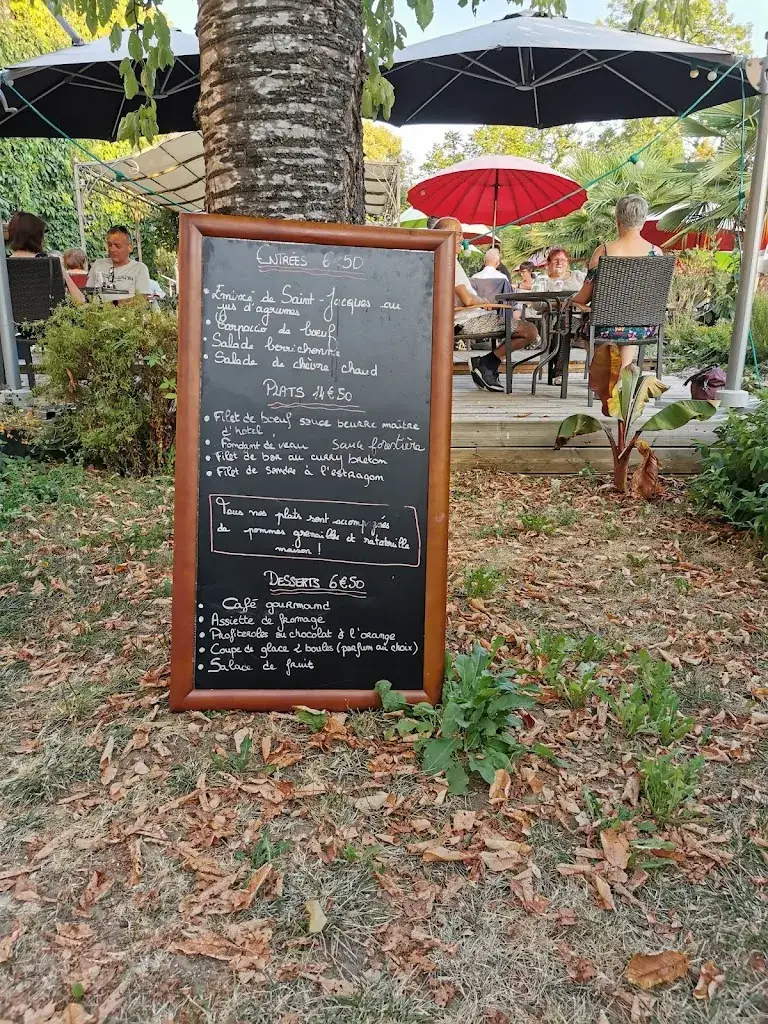 ENTRÉES 6€50
Emincé de Saint-Jacques au
jus d'agrumes
Carpaccio de bœuf
Salade berrichonne
Salade de chèvre chaud
PLATS 14€50
Filet de bœuf sauce beurre maître
d'hotel
Fondant de veau Sauce forestière
Filet de bar au curry breton
Filet de sandre à l'estragon
Tous nos plats sont accompagnés
de pommes grenaille et ratatouille
maison !
DESSERTS 6€50
Café gourmand
Assiette de fromage
Profiteroles au chocolat & l'orange
Coupe de glace 2 boules (parfum au choix)
Salade de fruit